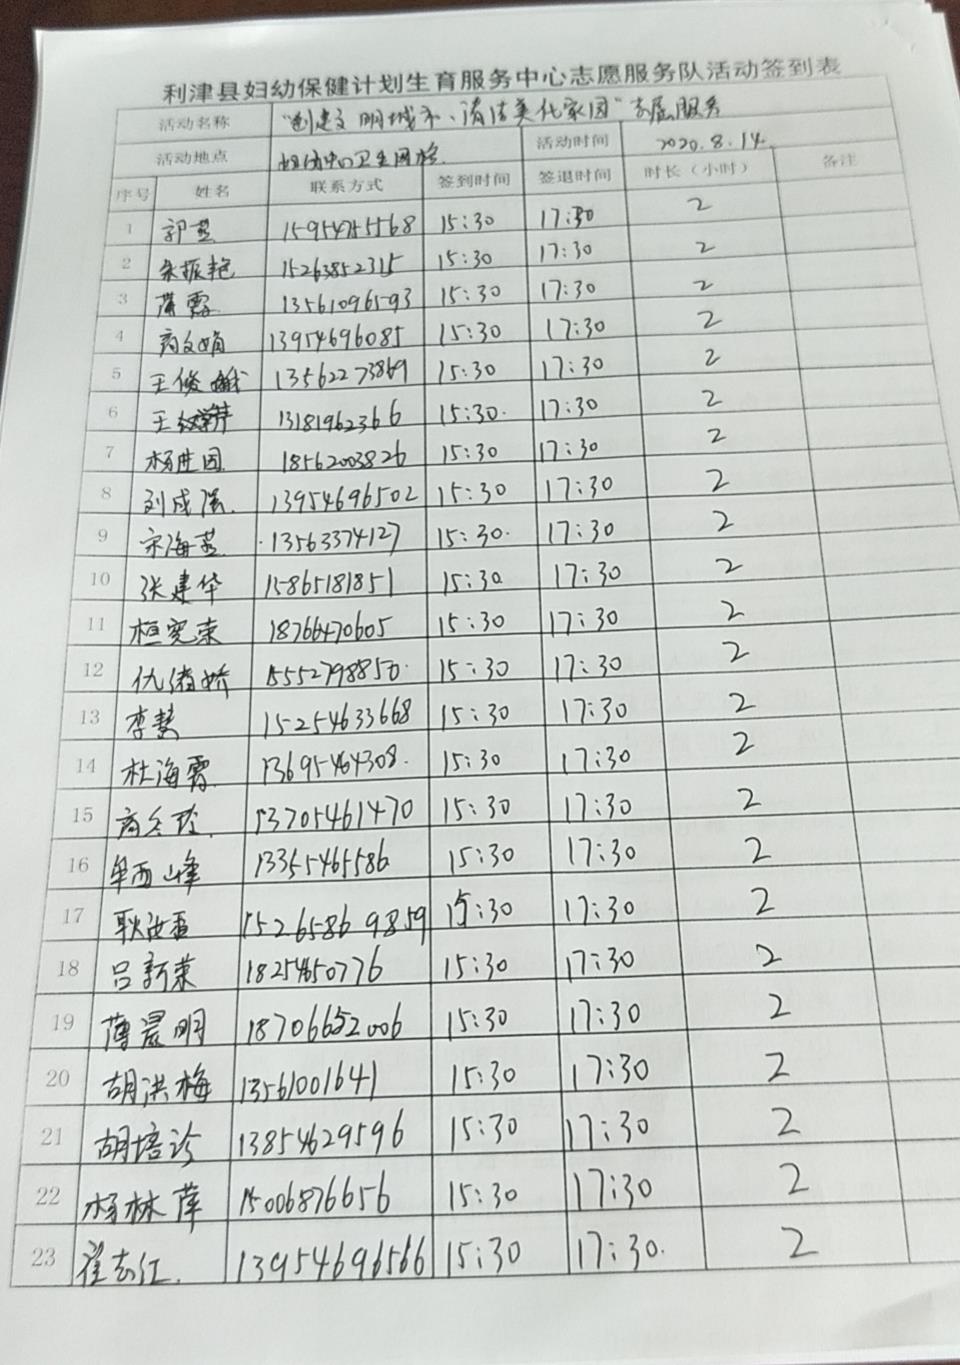 利津县妇幼保健计划生育服务中心志愿服务队活动签到表
活动名称 "创建文明城市、清洁美化家园"志愿服务
活动地点 卫生网格 活动时间 2020.8.14.
序号 姓名 联系方式 签到时间 签退时间 时长（小时） 备注
1 郭燕 15954755568 15:30 17:30 2
2 朱振艳 15263852315 15:30 17:30 2
3 霞 13561096593 15:30 17:30 2
4 文娟 13954696085 15:30 17:30 2
5 王俊娥 13562273869 15:30 17:30 2
6 王 13181962366 15:30. 17:30 2
7 杨世园 18562003826 15:30 17:30 2
8 刘成强. 13954696502 15:30 17:30 2
9 宋海燕 13563374127 15:30. 17:30 2
10 张建华 15865181851 15:30 17:30 2
11 桓宪荣 18766470605 15:30 17:30 2
12 仇绪娇 15552798850. 15:30 17:30 2
13 李慧 15254633668 15:30 17:30 2
14 杜海霞 13695464308. 15:30 17:30 2
15 13705461470 15:30 17:30 2
16 牟西峰 13355465586 15:30 17:30 2
17 耿 15265869859 15:30 17:30 2
18 吕新荣 18254650776 15:30 17:30 2
19 薄晨明 18706652006 15:30 17:30 2
20 胡洪梅 13561001641 15:30 17:30 2
21 胡培珍 13854629596 15:30 17:30 2
22 杨林萍 15006876656 15:30 17:30 2
23 崔志江. 13954696566 15:30 17:30. 2